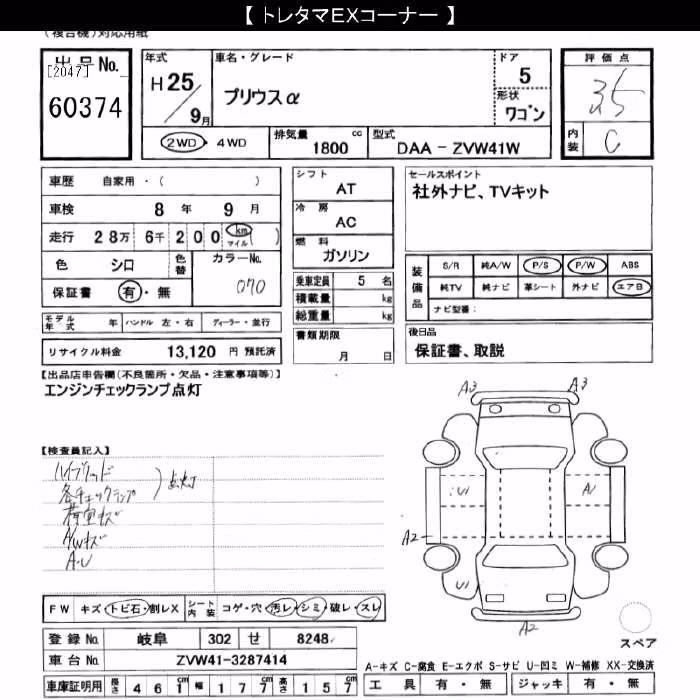 【 トレタマEXコーナー 】
(複合機)対応用紙
出品No.
[2047]
60374
年式
H25/9月
車名・グレード
プリウスα
ドア
5
形状
ワゴン
評価点
3.5
内装
C
2WD・4WD
排気量
1800 cc
型式
DAA－ZVW41W
車歴 自家用・( )
車検 8年 9月
走行 28万 6千 200 km マイル ( )
色 シロ 色替 カラーNo. 070
保証書 有・無
モデル年式 年 ハンドル 左・右 ディーラー・並行
リサイクル料金 13,120 円 預託済
シフト
AT
冷房
AC
燃料
ガソリン
乗車定員 5 名
積載量 kg
総重量 kg
書類期限
月 日
セールスポイント
社外ナビ、TVキット
装備品
S/R 純A/W P/S P/W ABS
純TV 純ナビ 革シート 外ナビ エアB
ナビ型番：
後日品
保証書、取説
【出品店申告欄(不良箇所・欠品・注意事項等)】
エンジンチェックランプ点灯
【検査員記入】
ハイブリッド
各チェックランプ ) 点灯
荷室キズ
A/Wキズ
A・U
A3 A3
U1 A1
A2
U1
A2
スペア
FW キズ・トビ石・割レX シート内装 コゲ・穴・汚レ・シミ・破レ・スレ
登録No. 岐阜 302 せ 8248
車台No. ZVW41-3287414
車庫証明用 長さ 461cm 幅 177cm 高さ 157cm
A-キズ C-腐食 E-エクボ S-サビ U-凹ミ W-補修 XX-交換済
工具 有・無 ジャッキ 有・無